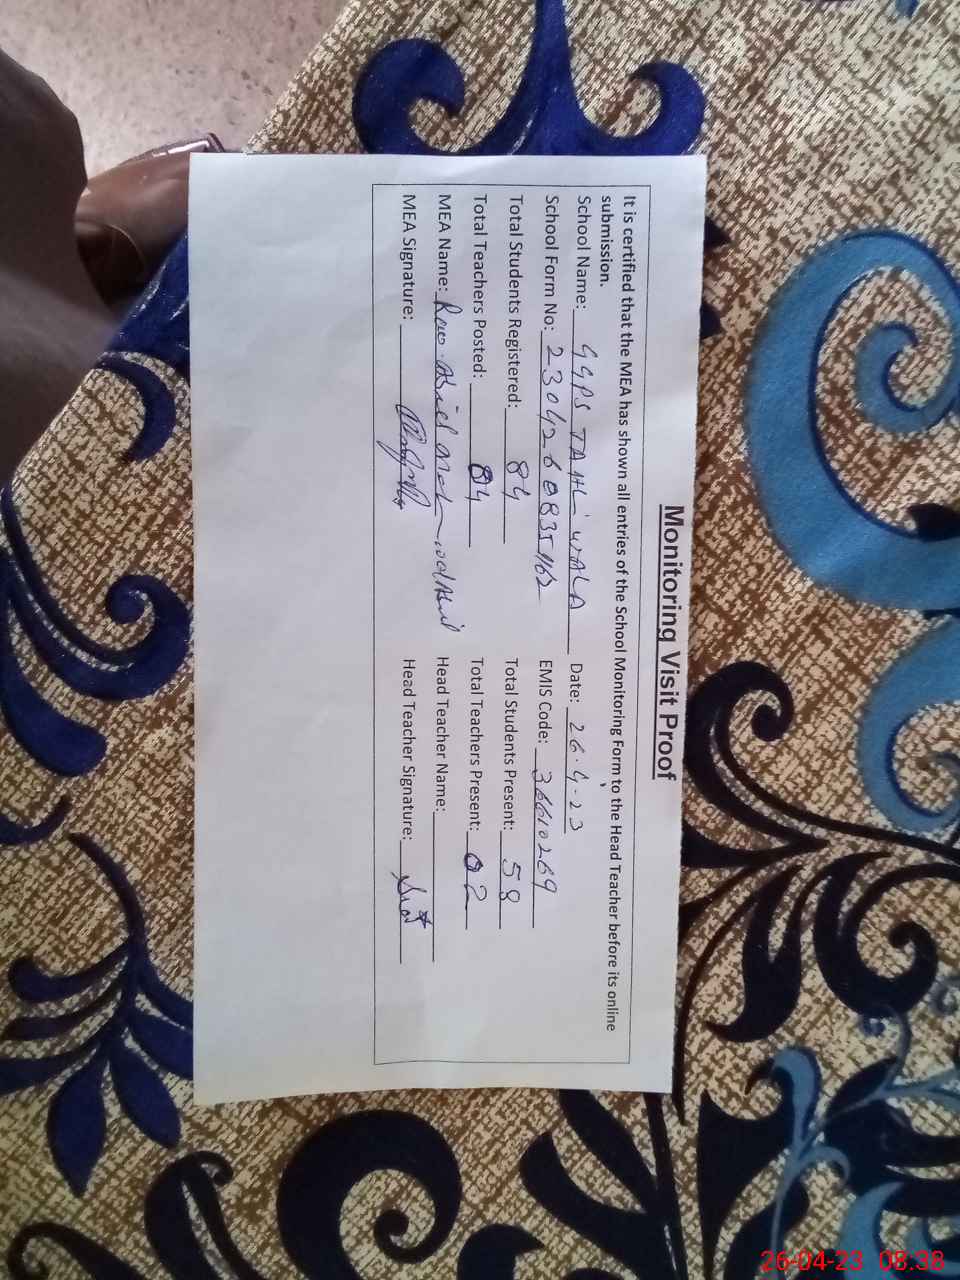 Monitoring Visit Proof
It is certified that the MEA has shown all entries of the School Monitoring Form to the Head Teacher before its online
submission.
School Name: GGPS TAHLI WALA Date: 26-4-23
School Form No: EMIS Code: 36610269
Total Students Registered: 84 Total Students Present: 58
Total Teachers Posted: 04 Total Teachers Present: 02
MEA Name: Head Teacher Name:
MEA Signature: Head Teacher Signature:
26-04-23 08:38